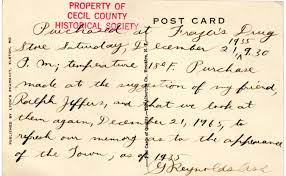 PROPERTY OF
CECIL COUNTY
HISTORICAL SOCIETY
POST CARD
Purchased at Frazer's Drug
Store Saturday, December 21, 1935 9.30
P. M; temperature 18°F. Purchase
made at the suggestion of my friend,
Ralph Jeffers, and that we look at
them again, December 21, 1965, to
refresh our memories to the appearance
of the Town, as of 1935
G. Reynolds Ash